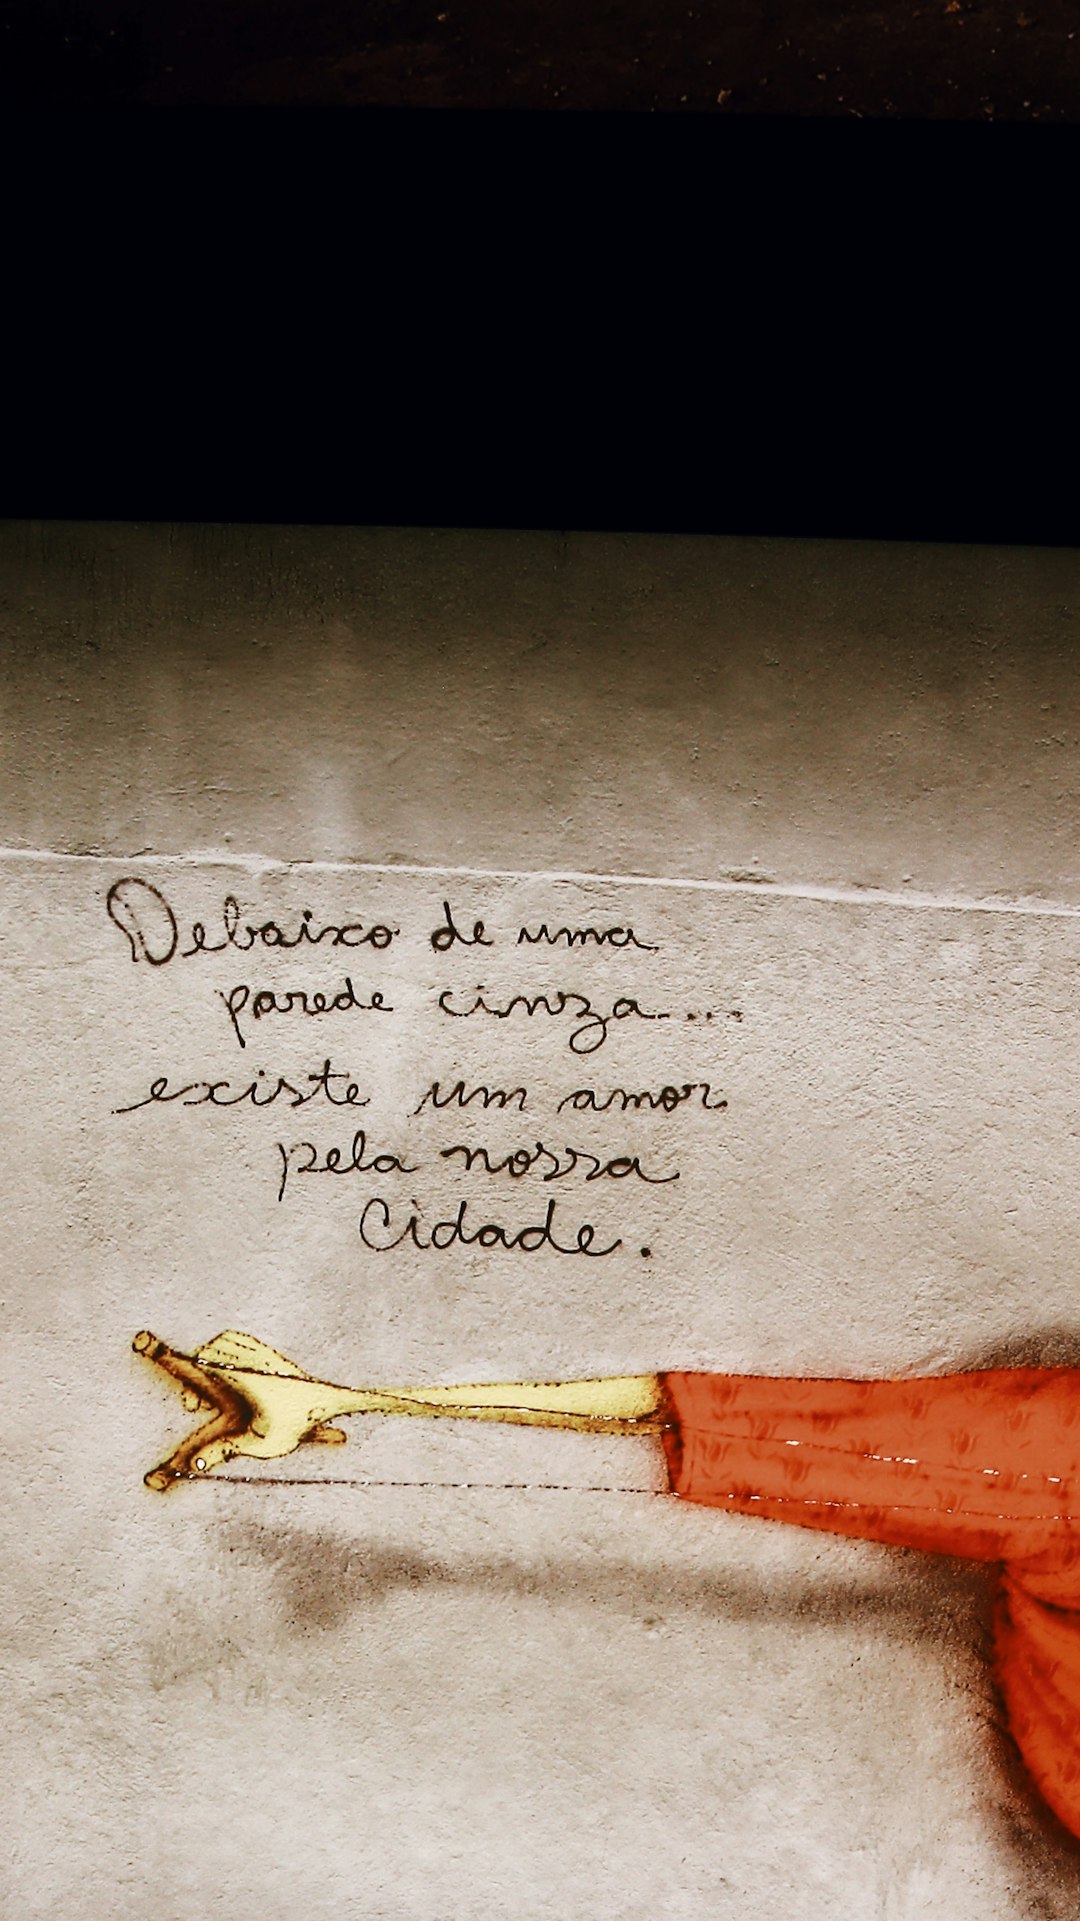 Debaixo de uma
parede cinza....
existe um amor
pela nossa
Cidade.